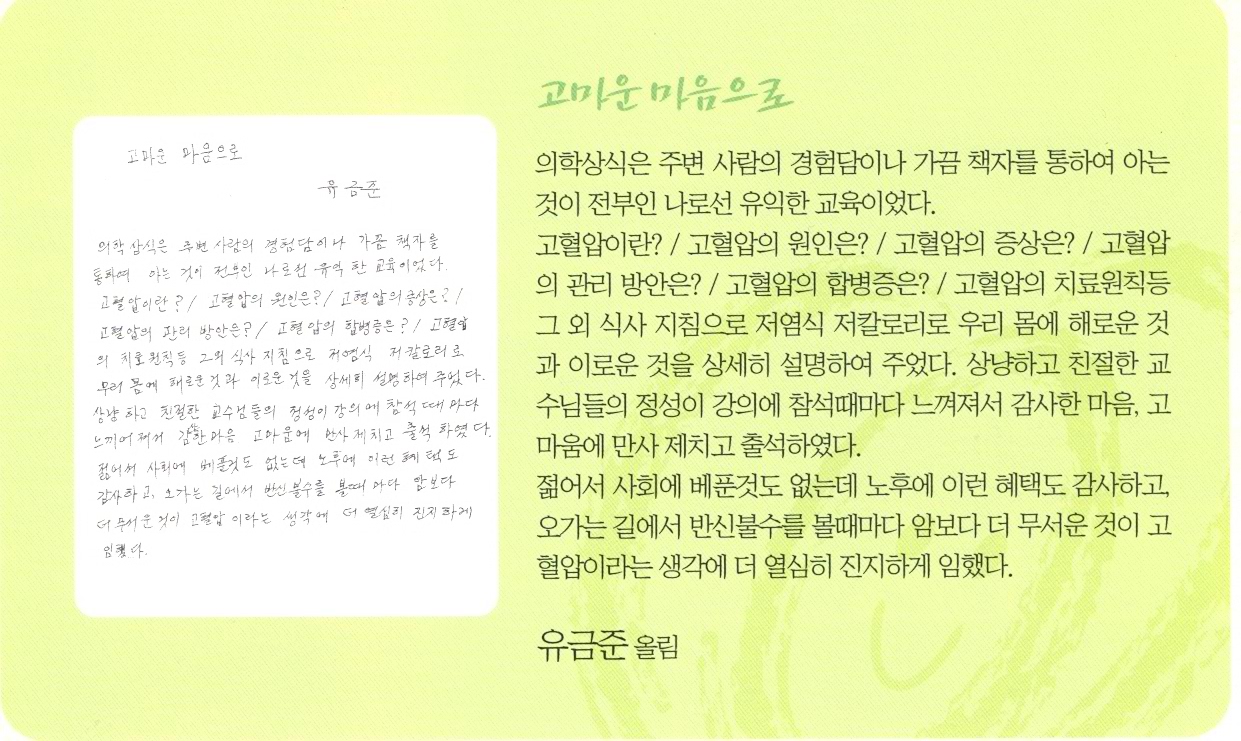 고마운 마음으로
유금준
의학 상식은 주변 사람의 경험담이나 가끔 책자를
통하여 아는 것이 전부인 나로선 유익한 교육이었다.
고혈압이란? / 고혈압의 원인은? / 고혈압의 증상은? /
고혈압의 관리 방안은? / 고혈압의 합병증은? / 고혈압
의 치료원칙등 그외 식사 지침으로 저염식 저칼로리로
우리 몸에 해로운것과 이로운것을 상세히 설명하여주었다.
상냥하고 친절한 교수님들의 정성이 강의에 참석때마다
느끼어져서 감사한마음 고마움에 만사제치고 출석하였다.
젊어서 사회에 베푼것도 없는데 노후에 이런 혜택도
감사하고, 오가는 길에서 반신불수를 볼때마다 암보다
더무서운것이 고혈압이라는 생각에 더 열심히 진지하게
임했다.
고마운 마음으로
의학상식은 주변 사람의 경험담이나 가끔 책자를 통하여 아는
것이 전부인 나로선 유익한 교육이었다.
고혈압이란? / 고혈압의 원인은? / 고혈압의 증상은? / 고혈압
의 관리 방안은? / 고혈압의 합병증은? / 고혈압의 치료원칙등
그 외 식사 지침으로 저염식 저칼로리로 우리 몸에 해로운 것
과 이로운 것을 상세히 설명하여 주었다. 상냥하고 친절한 교
수님들의 정성이 강의에 참석때마다 느껴져서 감사한 마음, 고
마움에 만사 제치고 출석하였다.
젊어서 사회에 베푼것도 없는데 노후에 이런 혜택도 감사하고,
오가는 길에서 반신불수를 볼때마다 암보다 더 무서운 것이 고
혈압이라는 생각에 더 열심히 진지하게 임했다.
유금준 올림